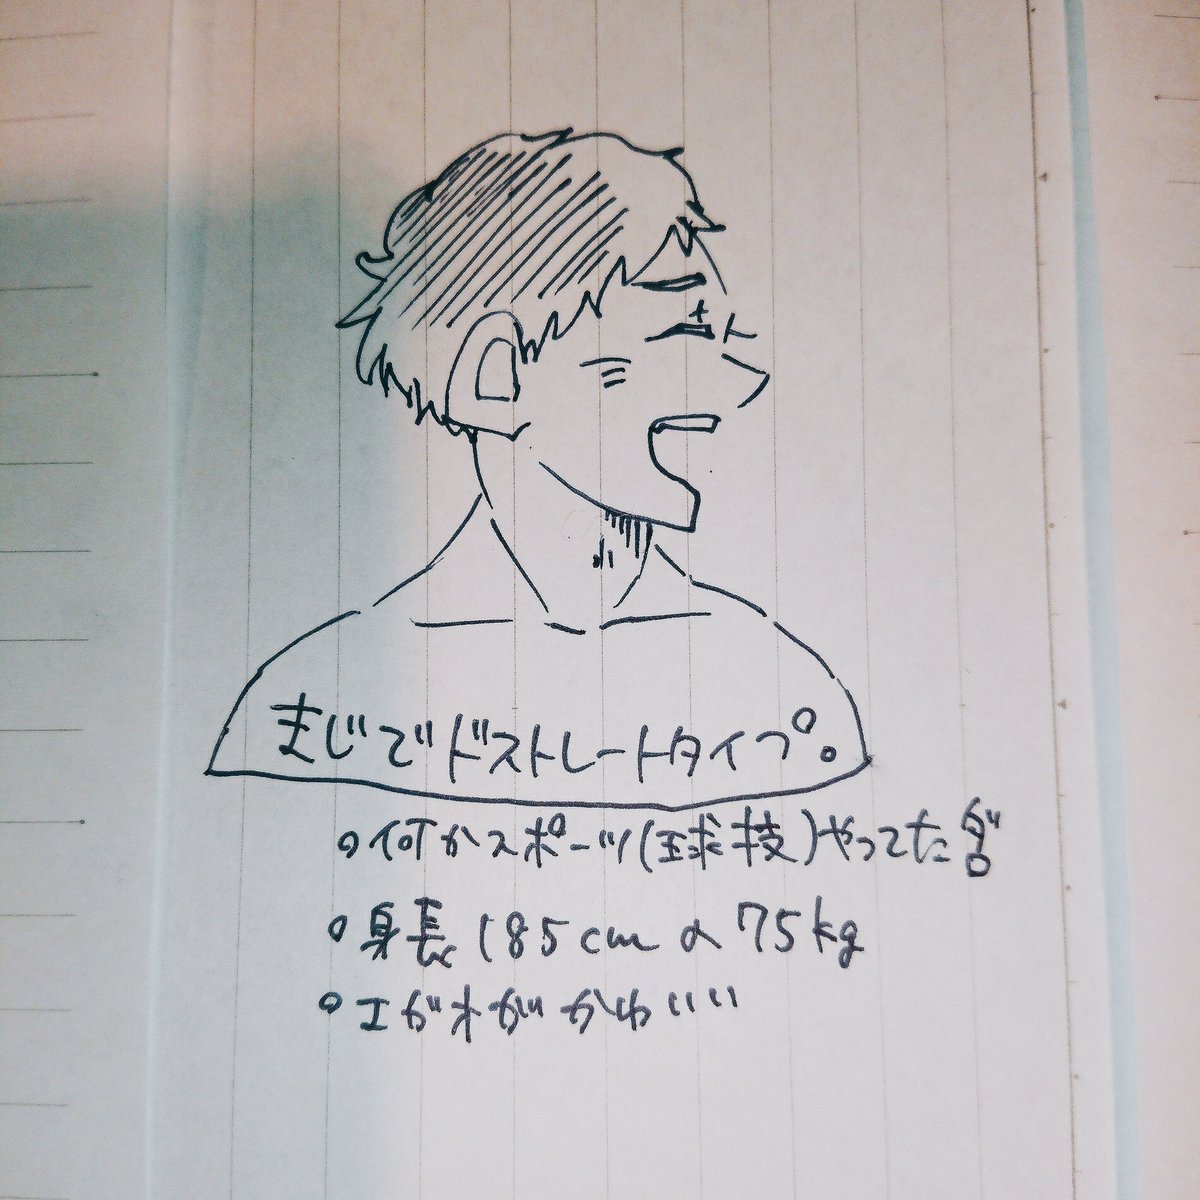 まじでドストレートタイプ。
○何かスポーツ(球技)やってた
○身長185cm 75kg
○エがオがかわいい